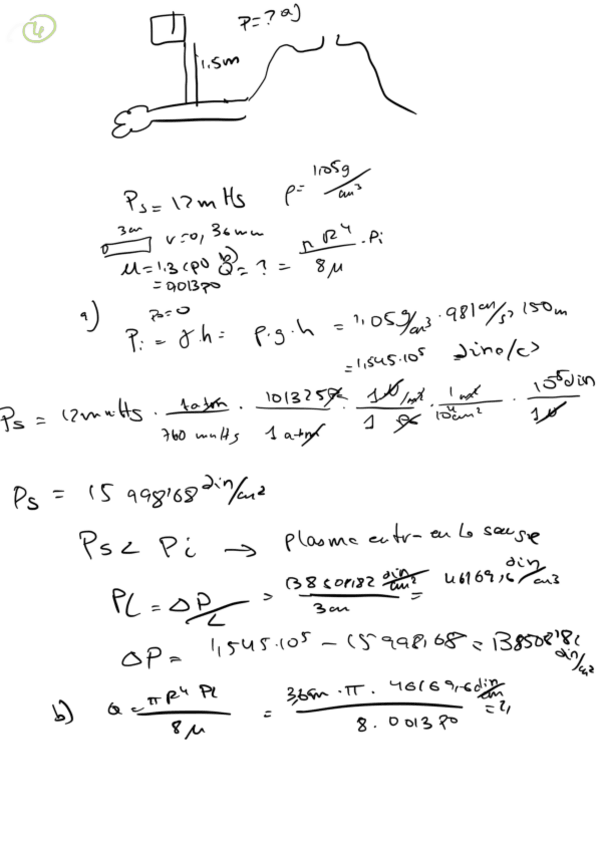 4
P=? a)
1.5m
Ps = 12mmHs ρ= 1.05g/cm³
3cm
r=0,36mm
μ=1.3 cpo b) Q=? = π R⁴/8μ · Pi
= 0.013po
a) Po=0
Pi = γ.h = ρ.g.h = 1,05g/cm³ · 981cm/s² 150m
= 1,545.10⁵ dino/c
Ps = 12mmHs · 1atm/760 mmHs · 101325Pa/1 atm · 1 N/m²/1 Pa · 1 m²/10⁴cm² · 10⁵din/1N
Ps = 15 998,68 din/cm²
Ps < Pi → Plasma entr- en la sangre
PL = ΔP/L = 138501,82 din/cm²/3cm = 46169,6 din/cm³
ΔP = 1,545.10⁵ - 15998,68 = 138508,8 din/cm²
b) Q = πR⁴ PL/8μ = 3,6cm · π · 46169,6 din/cm/8.0013po = 2,